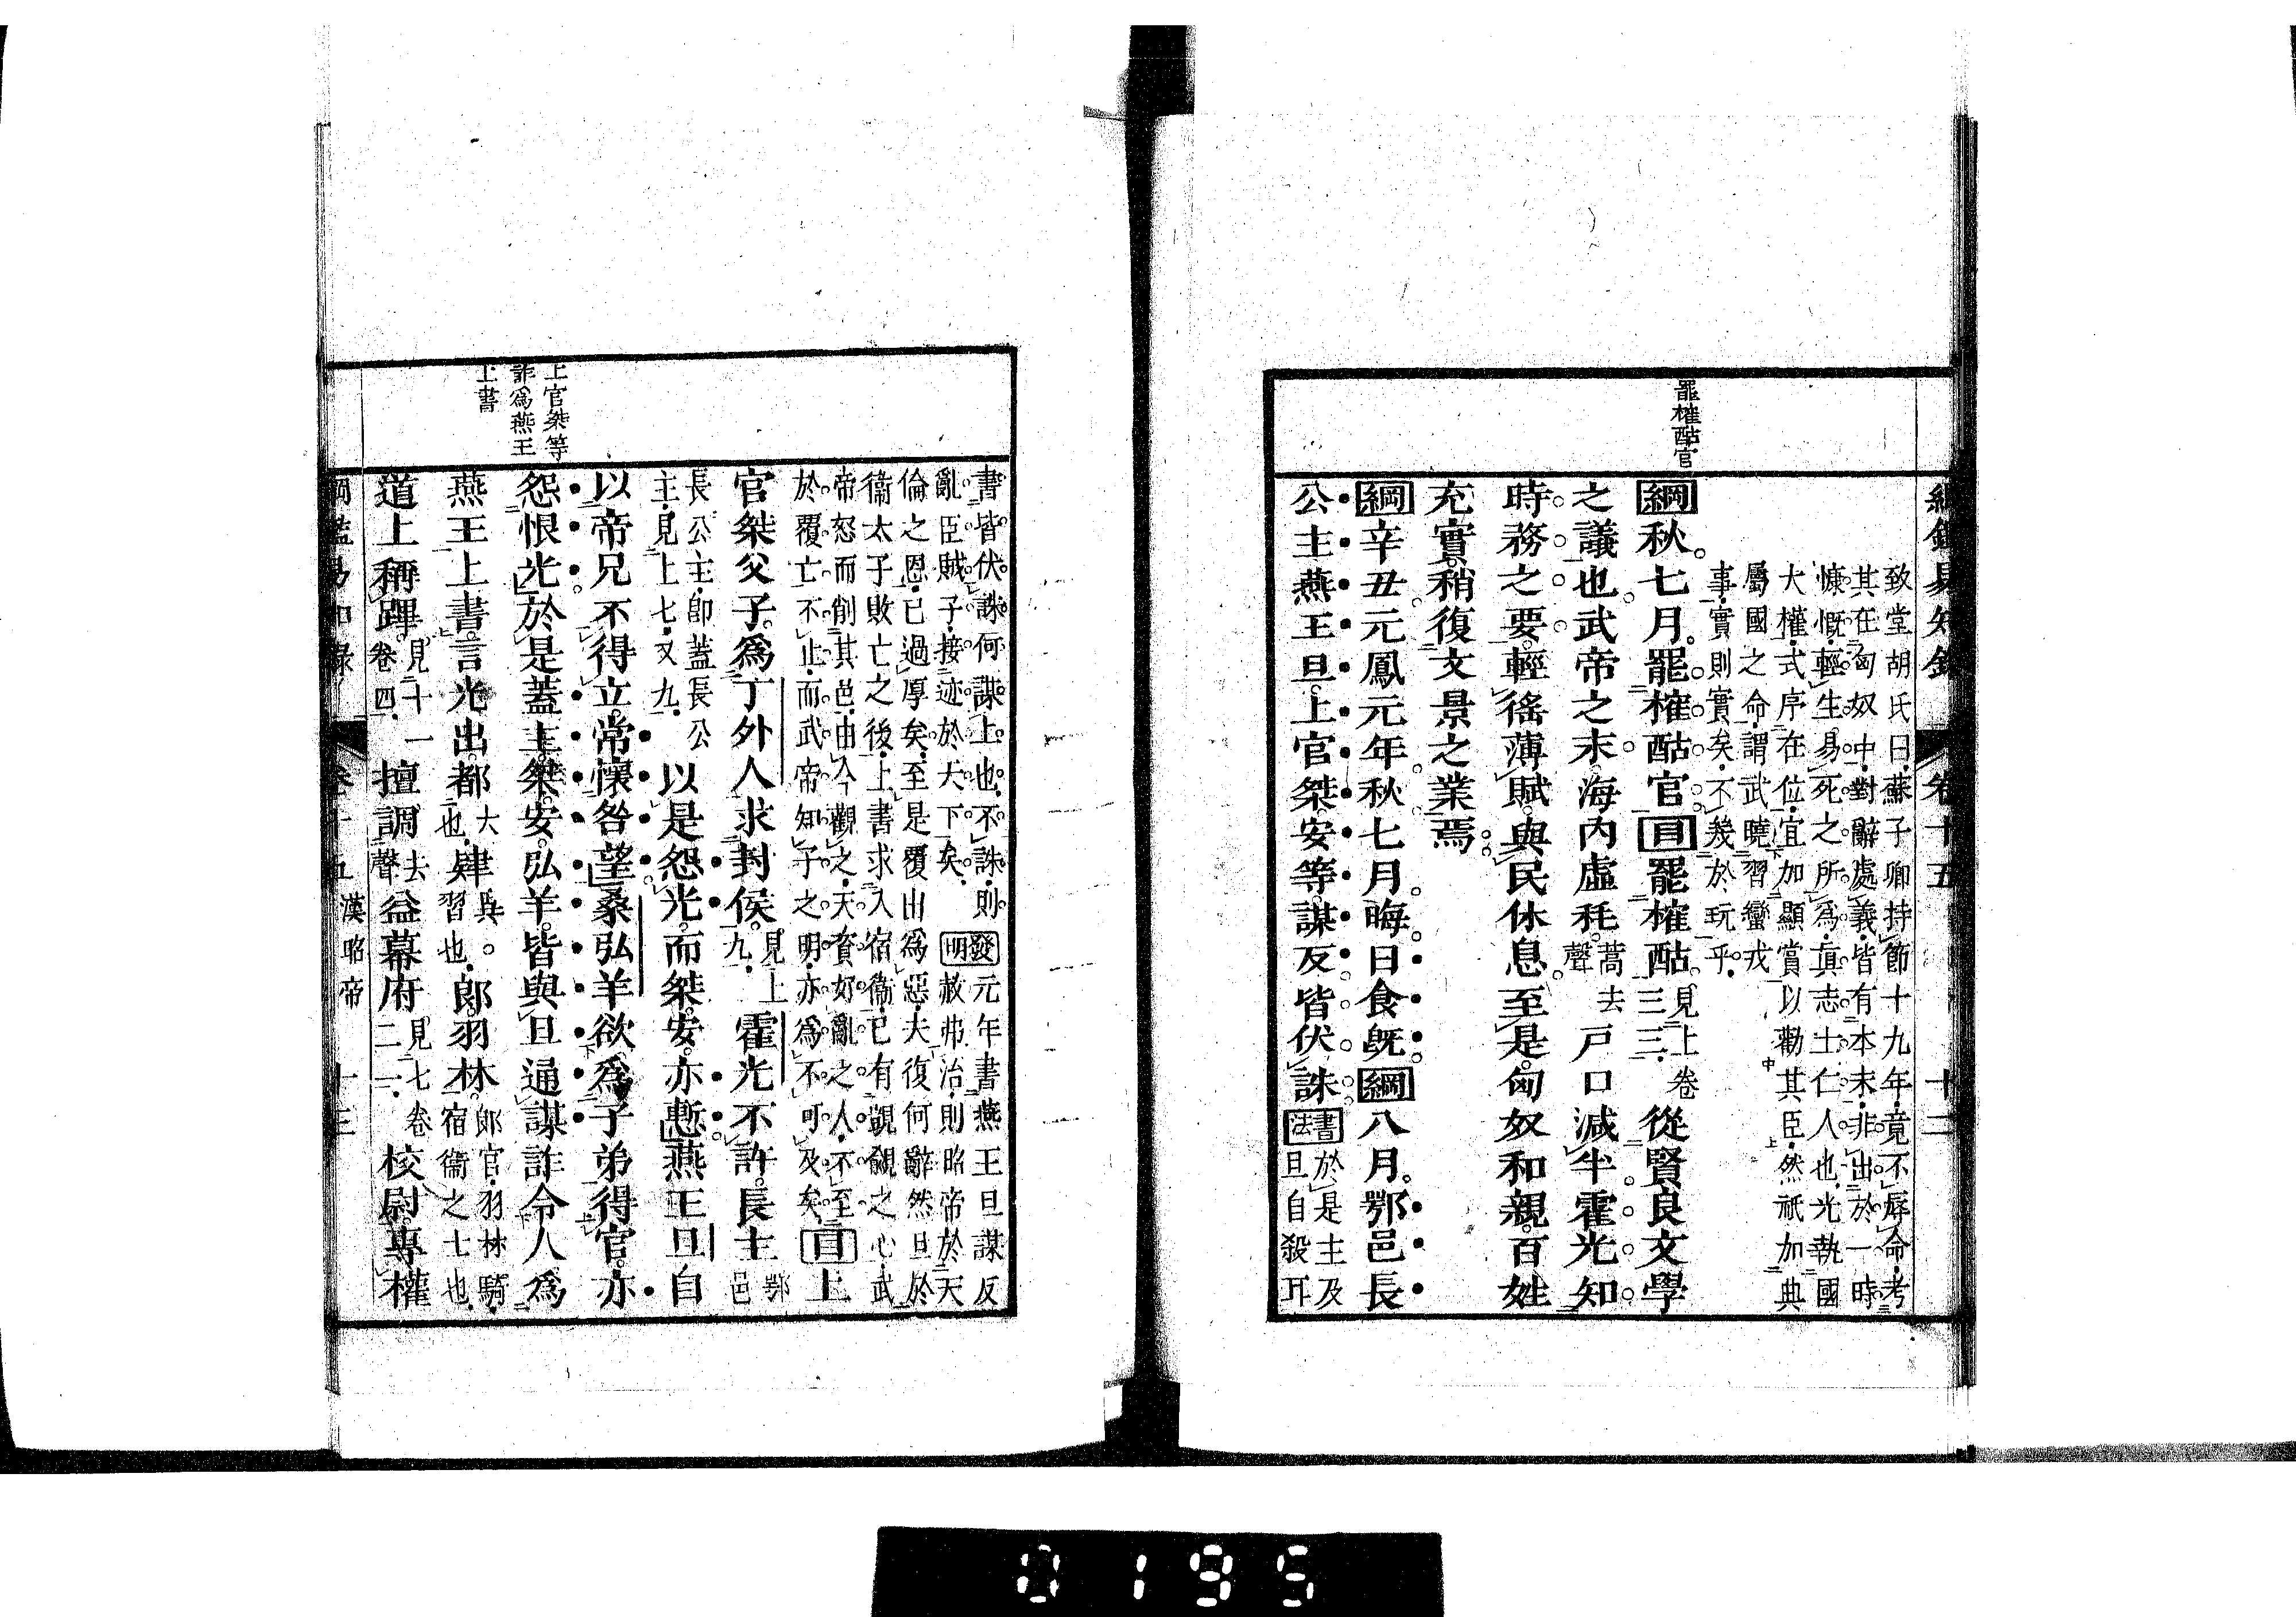 綱鑑易知錄 卷十五 十二
致堂胡氏曰蘇子卿持節十九年竟不辱命考
其在匈奴中對辭處義皆有本末非出於一時
慷慨輕生易死之所爲眞志士仁人也光執國
大權式序在位宜加顯賞以勸其臣然祇加典
屬國之命謂武曉習蠻戎
事實則實矣不幾於玩乎
罷榷酤官
綱秋七月罷榷酤官目罷榷酤見上卷三三從賢良文學
之議也武帝之末海內虛耗蒿去聲戶口減半霍光知
時務之要輕徭薄賦與民休息至是匈奴和親百姓
充實稍復文景之業焉
綱辛丑元鳳元年秋七月晦日食旣綱八月鄂邑長
公主燕王旦上官桀安等謀反皆伏誅書法於是主及旦自殺耳
書皆伏誅何謀上也不誅則
亂臣賊子接迹於天下矣發明元年書燕王旦謀反赦弗治則昭帝於天
倫之恩已過厚矣至是覆出爲惡夫復何辭然旦於
衞太子敗亡之後上書求入宿衞已有覬覦之心武
帝怒而削其邑由今觀之天資好亂之人不至
於覆亡不止而武帝知子之明亦爲不可及矣目上
官桀父子爲丁外人求封侯見上九霍光不許長主鄂邑
長公主卽蓋長公主見上七又九以是怨光而桀安亦慙燕王旦自
以帝兄不得立常懷咎望桑弘羊欲爲子弟得官亦
怨恨光於是蓋主桀安弘羊皆與旦通謀詐令人爲
上官桀等
詐爲燕王
上書
燕王上書言光出都大也肄習也兵。郎羽林郎官羽林騎宿衞之士也
道上稱蹕見十一卷四擅調去聲益幕府見七卷二一校尉專權
綱鑑易知錄 卷十五 漢昭帝 十三
0195